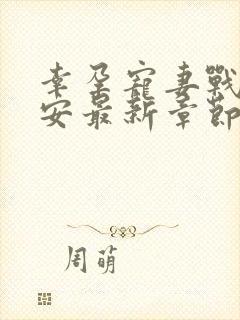 幸孕寵妻戰
安最新章節
周萌